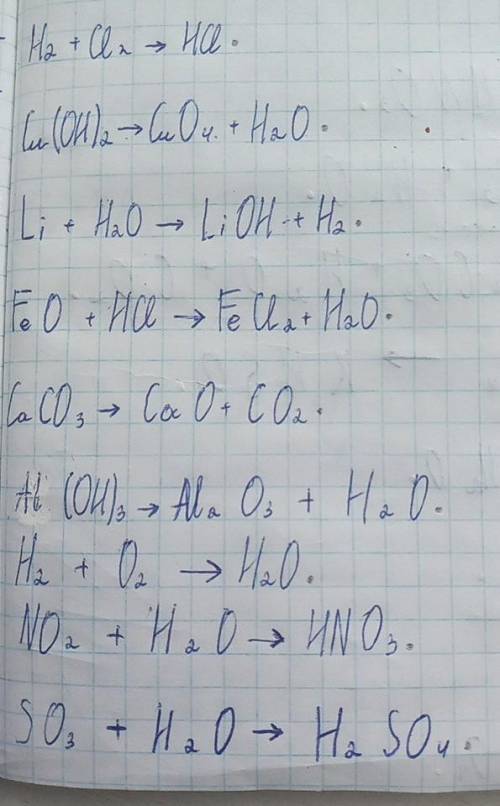 H₂ + Cl₂ → HCl.
Cu(OH)₂ → CuO₄. + H₂O.
Li + H₂O → LiOH + H₂.
FeO + HCl → FeCl₂ + H₂O.
CaCO₃ → CaO + CO₂.
Al(OH)₃ → Al₂O₃ + H₂O.
H₂ + O₂ → H₂O.
NO₂ + H₂O → HNO₃.
SO₃ + H₂O → H₂SO₄.